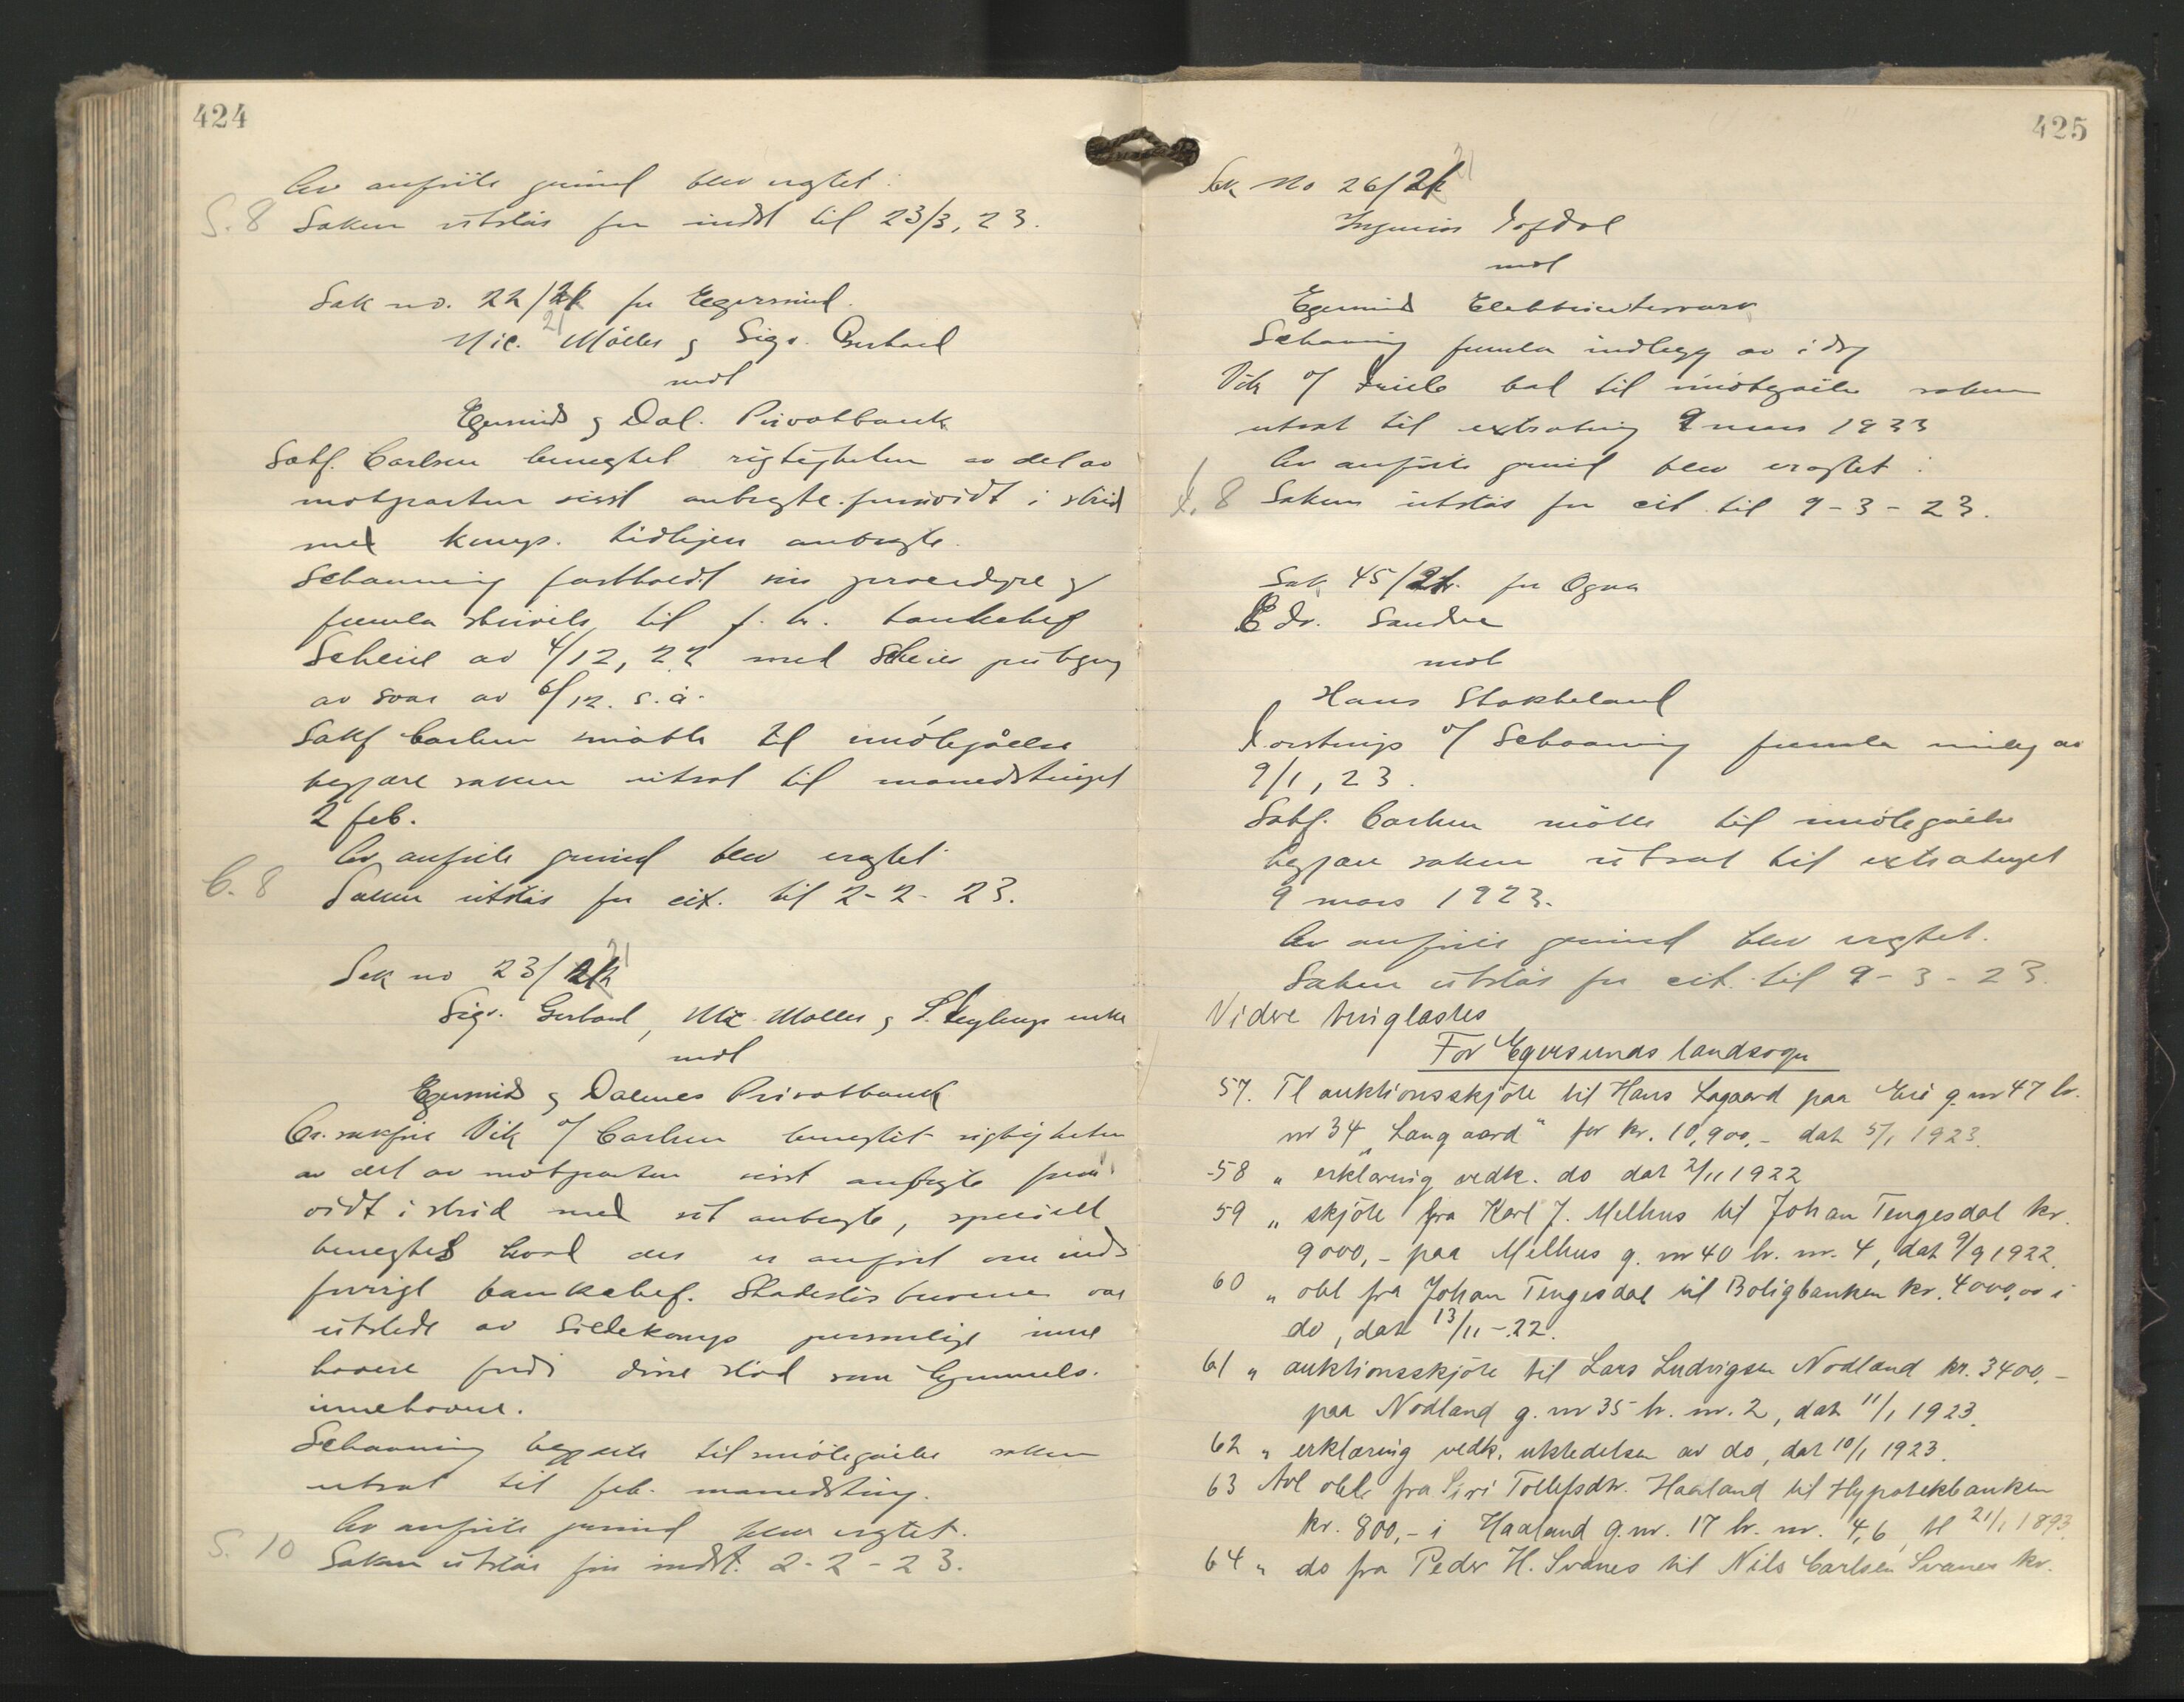 424
Av anførte grund blev eragtet:
S. 8 Saken utstaar for indst til 23/3, 23.
Sak no. 22/21 for Egersund.
Nic. Møller og Sigv. Gerhard
mot
Egersunds og Dal. Privatbank
Sakf. Carlsen benegtet rigtigheten av det av
motparten sisst anbragte forsaavidt i strid
med komp. tidligere anbragte.
Schanning fastholdt sin procedyre og
fremla skrivelse til f. h. bankchef
av 4/12, 22 med
av svar av 6/12. s. å.
Sakf Carlsen maatte til imøtegåelse
begjære saken utsat til maanedstinget
2 feb.
Av anførte grund blev eragtet
C. 8 Saken utstaar for cit. til 2-2-23.
Sak no 23/21
Sigv. Gerhard, Nic. Møller og enke
mot
Egersunds og Dalernes Privatbank
Or. sakfører Vik o/ Carlsen benegtet rigtigheten
av det av motparten sisst anbragte forsaa-
vidt i strid med sit anbragte, specielt
benegtes hvad der er anført om ind-
forrige bankchef.
utstedt av Sildekomp personlige inne
havere fordi disse stod som
innehavere.
Schanning begjærte til imøtegaaelse saken
utsat til feb. maanedsting.
Av anførte grund blev eragtet.
S. 10 Saken utstaar for indst. 2-2-23.
425
Sak no 26/21
Ingeniør
mot
Egersunds Elektricitetsverk
Schanning fremla indlegg av i dag
Vik o/ bad til imøtegaaelse saken
utsat til extrating 9 mars 1923
Av anførte grund blev eragtet:
8 Saken utstaar for cit. til 9-3-23.
Sak 45/21. for Ogna
Edv. Sandve
mot
Hans Stokkeland
o/ Schanning fremla indleg av
9/1, 23.
Sakf. Carlsen måtte til imøtegåelse
begjære saken utsat til extratinget
9 mars 1923.
Av anførte grund blev eragtet.
Saken utstaar for cit. til 9-3-23.
Videre tinglæstes
For Egersunds landsogn
57. Tl auktionsskjöte til Hans Lagaard paa Eie g. nr 47 br.
nr 34 "Langaard" for kr. 10,900,- dat 5/1 1923.
58 " erklæring vedk. do dat 2/11 1922
59 " skjöte fra Karl J. Melhus til Johan Tengesdal kr.
9000,- paa Melhus g. nr 40 br. nr. 4, dat 9/9 1922.
60 " obl fra Johan Tengesdal til Boligbanken kr. 4000,00 i
do, dat 13/11-22.
61 " auktionsskjöte til Lars Ludvigsen Nodland kr. 3400,-
paa Nodland g. nr 35 br. nr. 2, dat 11/1 1923.
62 " erklæring vedk. utstedelsen av do, dat 10/1 1923.
63 Avl obl. fra Siri Tollefsdtr. Haaland til Hypotekbanken
kr. 800,- i Haaland g.nr. 17 br. nr. 4,6, tl 21/1 1893.
64 " do fra Peder H. Svanes til Nils Carlsen Svanes kr.